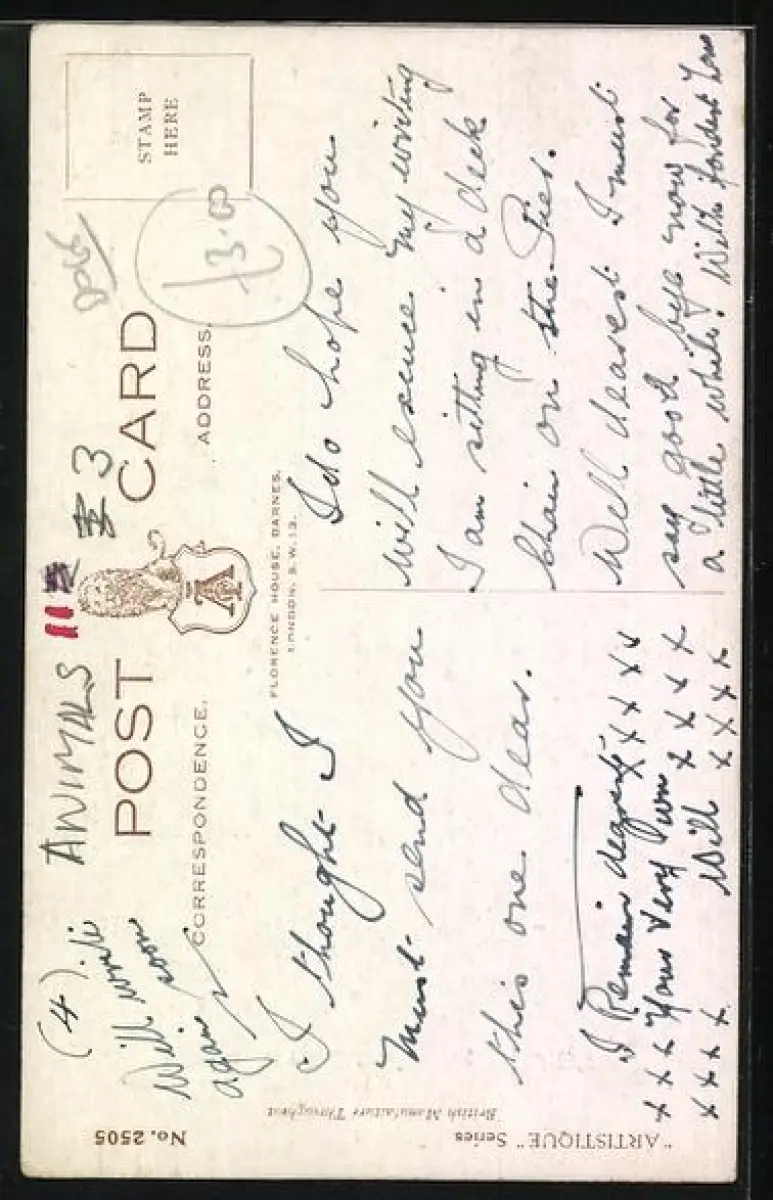 (4).
Will write
soon
again
ANIMALS
11
£3
DOGS
£3.00
POST CARD
STAMP
HERE
CORRESPONDENCE.
ADDRESS.
FLORENCE HOUSE, BARNES,
LONDON, S.W.13.
I thought I
must send you
this one dear.
I do hope you
will excuse my writing
I am sitting in a deck
chair on the Pier.
Well dearest I must
say good bye now for
a little while. With fondest love
I Remain dearest x x x x
x x x Yours Very Own x x x x
x x x x Will x x x x
"ARTISTIQUE" Series
British Manufacture Throughout
No. 2505